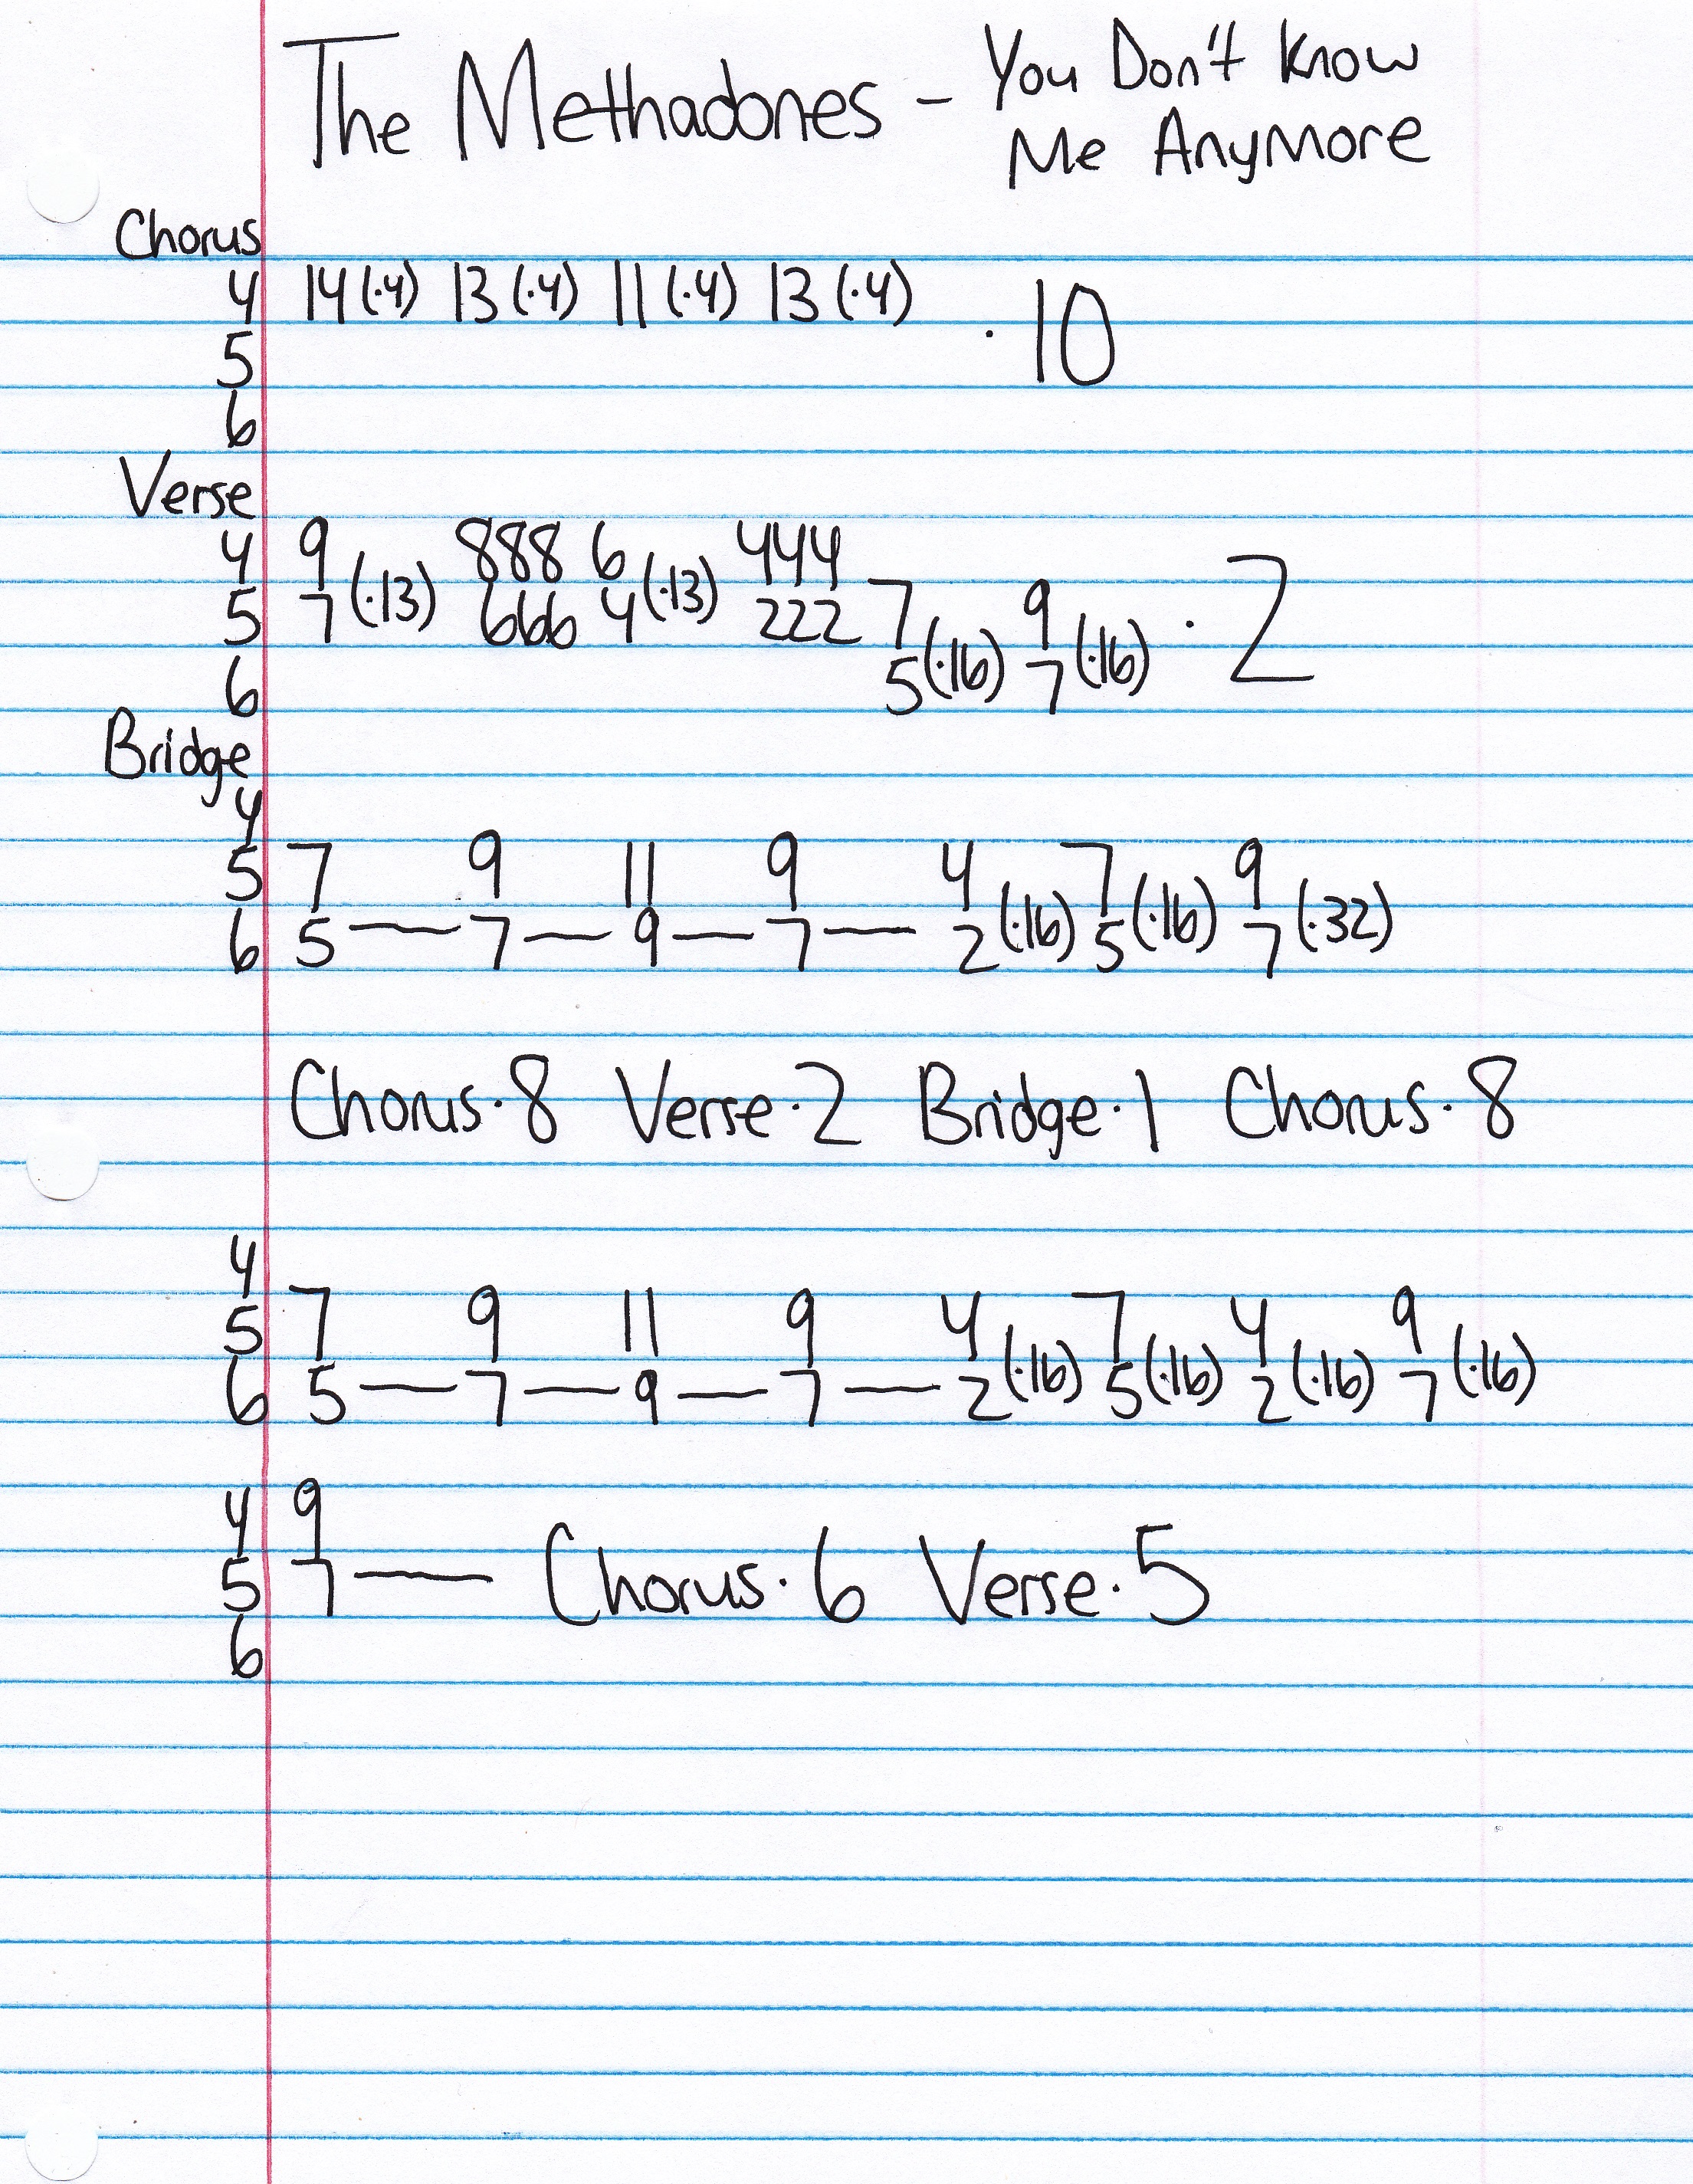 The Methadones - You Don't Know
Me Anymore
Chorus
4 14(·4) 13(·4) 11(·4) 13(·4) · 10
5
6
Verse
4 9 888 6 444
5 7(·13) 666 4(·13) 222 7 9 · 2
6 5(·16) 7(·16)
Bridge
4
5 7 9 11 9 4 7 9
6 5 — 7 — 9 — 7 — 2(·16) 5(·16) 7(·32)
Chorus·8 Verse·2 Bridge·1 Chorus·8
4
5 7 9 11 9 4 7 4 9
6 5 — 7 — 9 — 7 — 2(·16) 5(·16) 2(·16) 7(·16)
4 9
5 7 — Chorus·6 Verse·5
6